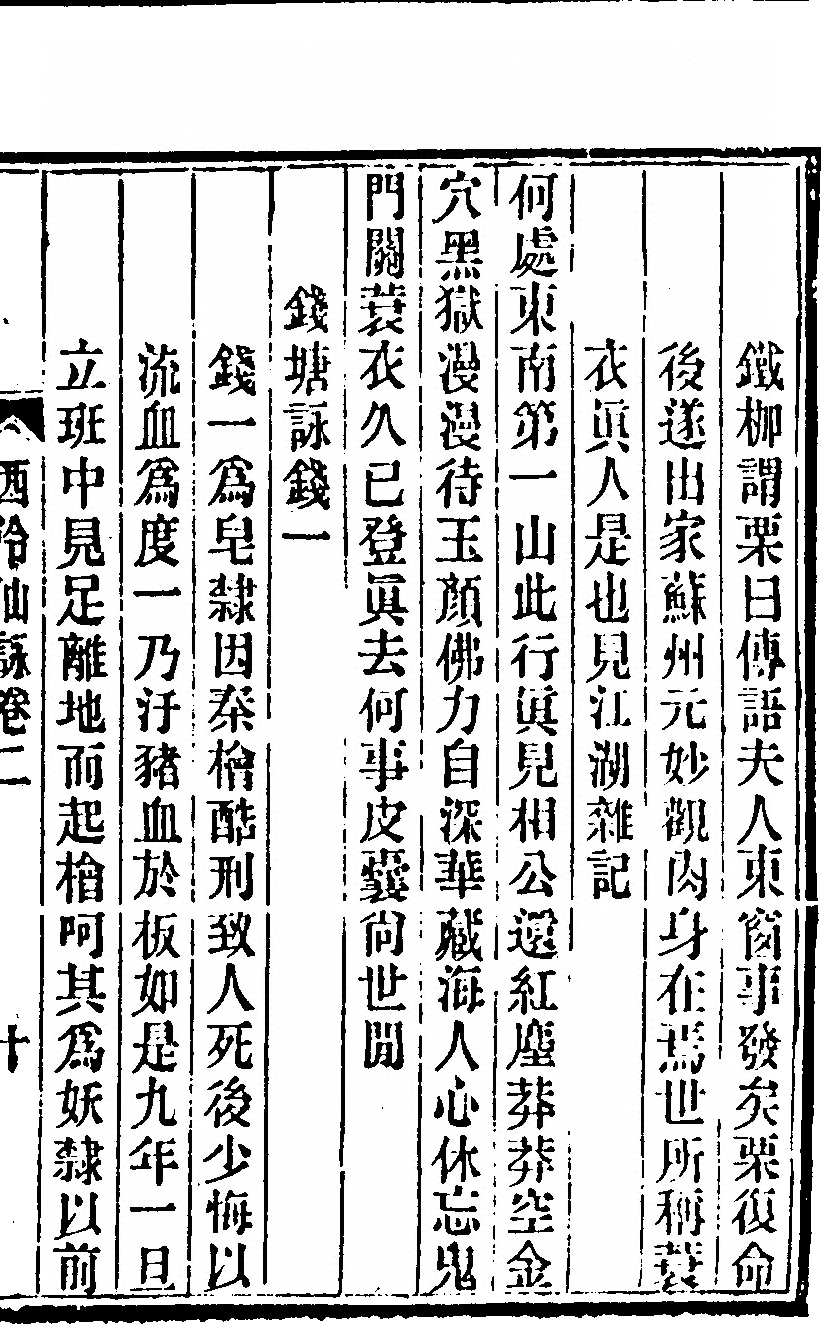 鐵枷謂栗曰傳語夫人東窗事發矣栗復命
後遂出家蘇州元妙觀肉身在焉世所稱蓑
衣眞人是也見江湖雜記
何處東南第一山此行眞見相公還紅塵莽莽空金
穴黑獄漫漫待玉顏佛力自深華藏海人心休忘鬼
門關蓑衣久已登眞去何事皮囊尙世閒
錢塘詠錢一
錢一爲皂隸因秦檜酷刑致人死後少悔以
流血爲度一乃汙豬血於板如是九年一旦
立班中見足離地而起檜呵其爲妖隸以前
西泠仙詠卷二
十